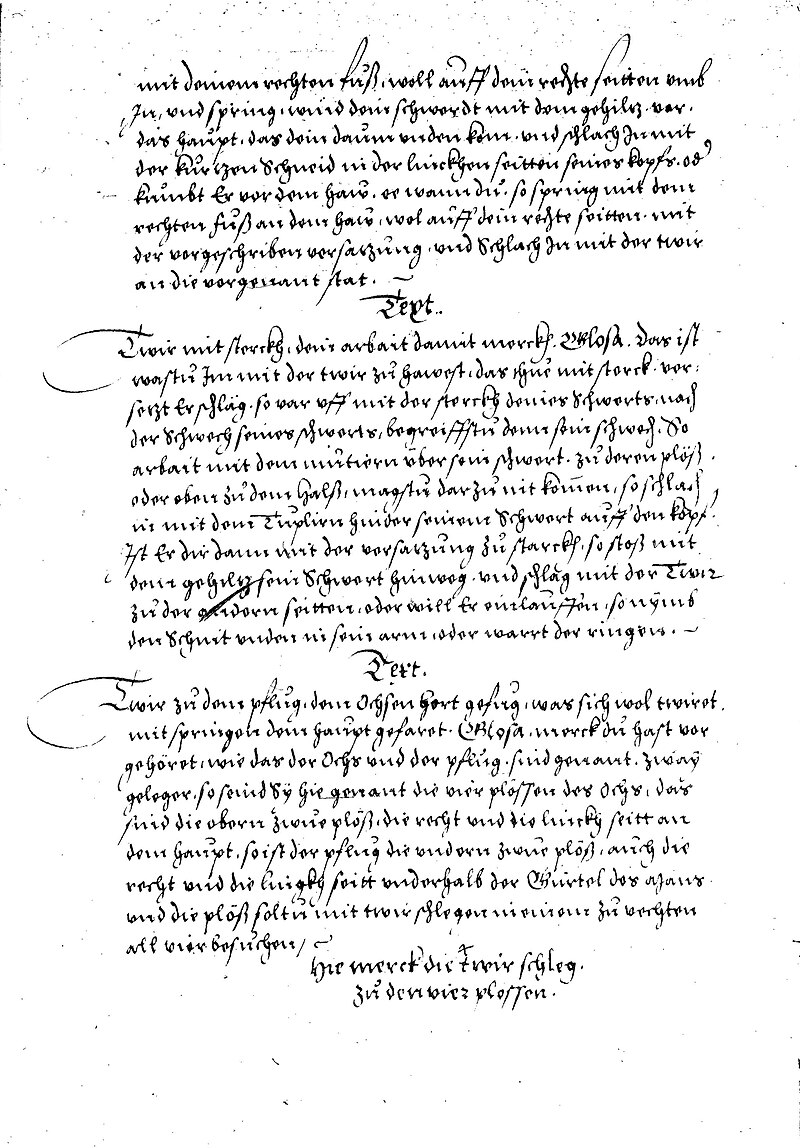 mit deinem rechten fuß, woll auff dein rechte seitten umb
In, und spring, wind dein schwerdt mit dem gehiltz vor
das haupt, das dein daum unden kom, und schlach In mit
der kurtzen Schneid in der linckhen seitten seines kopfs. od'
kumbt Er vor dem haw, ee wann du, so spring mit dem
rechten fuß an dem haw, wol auff dein rechte seitten, mit
der vorgeschriben versatzung, und Schlach In mit der twir
an die vorgenant stat.
Text.
Twir mit sterckh, dein arbait damit merckh. Glosa. Das ist
wastu Im mit der twir zu hawest, das thue mit sterck, ver:
setzt Er schlag, so var uff mit der sterckh deines Schwerts, nach
der Schwech seines schwerts, begreiffstu denn sein schwech. So
arbait mit dem mutiern über sein schwert, zu deren plöß,
oder oben zu dem halß, magstu darzu nit komen, so schlach
in mit dem Tuplirn hinder seinem Schwert auff den kopf,
Ist Er dir dann mit der versatzung zu starckh, so stoß mit
dem gehiltz sein Schwert hinweg, und schlag mit der Twir
zu der andern seitten, oder will Er einlauffen, so nymb
den Schnit unden in sein arm, oder warrt der ringen.
Text.
Twir zu dem pflug, dem Ochsen hert gefug, was sich wol twiret
mit springen dem haupt gefaret. Glosa, merck du hast vor
gehöret, wie das der Ochs und der pflug, sind genant, zway
geleger, so seind Sy hie genant die vier plössen des Ochs, das
sind die obern zwue plöß, die recht und die linckh seitt an
dem haupt, so ist der pflug die undern zwue plöß, auch die
recht und die lingkh seitt underhalb der Gürtel des Mans
und die plöß soltu mit twir schlegen in einem zu vechten
all vier besuchen /
Hie merck die twir schleg.
zu den vier plossen.